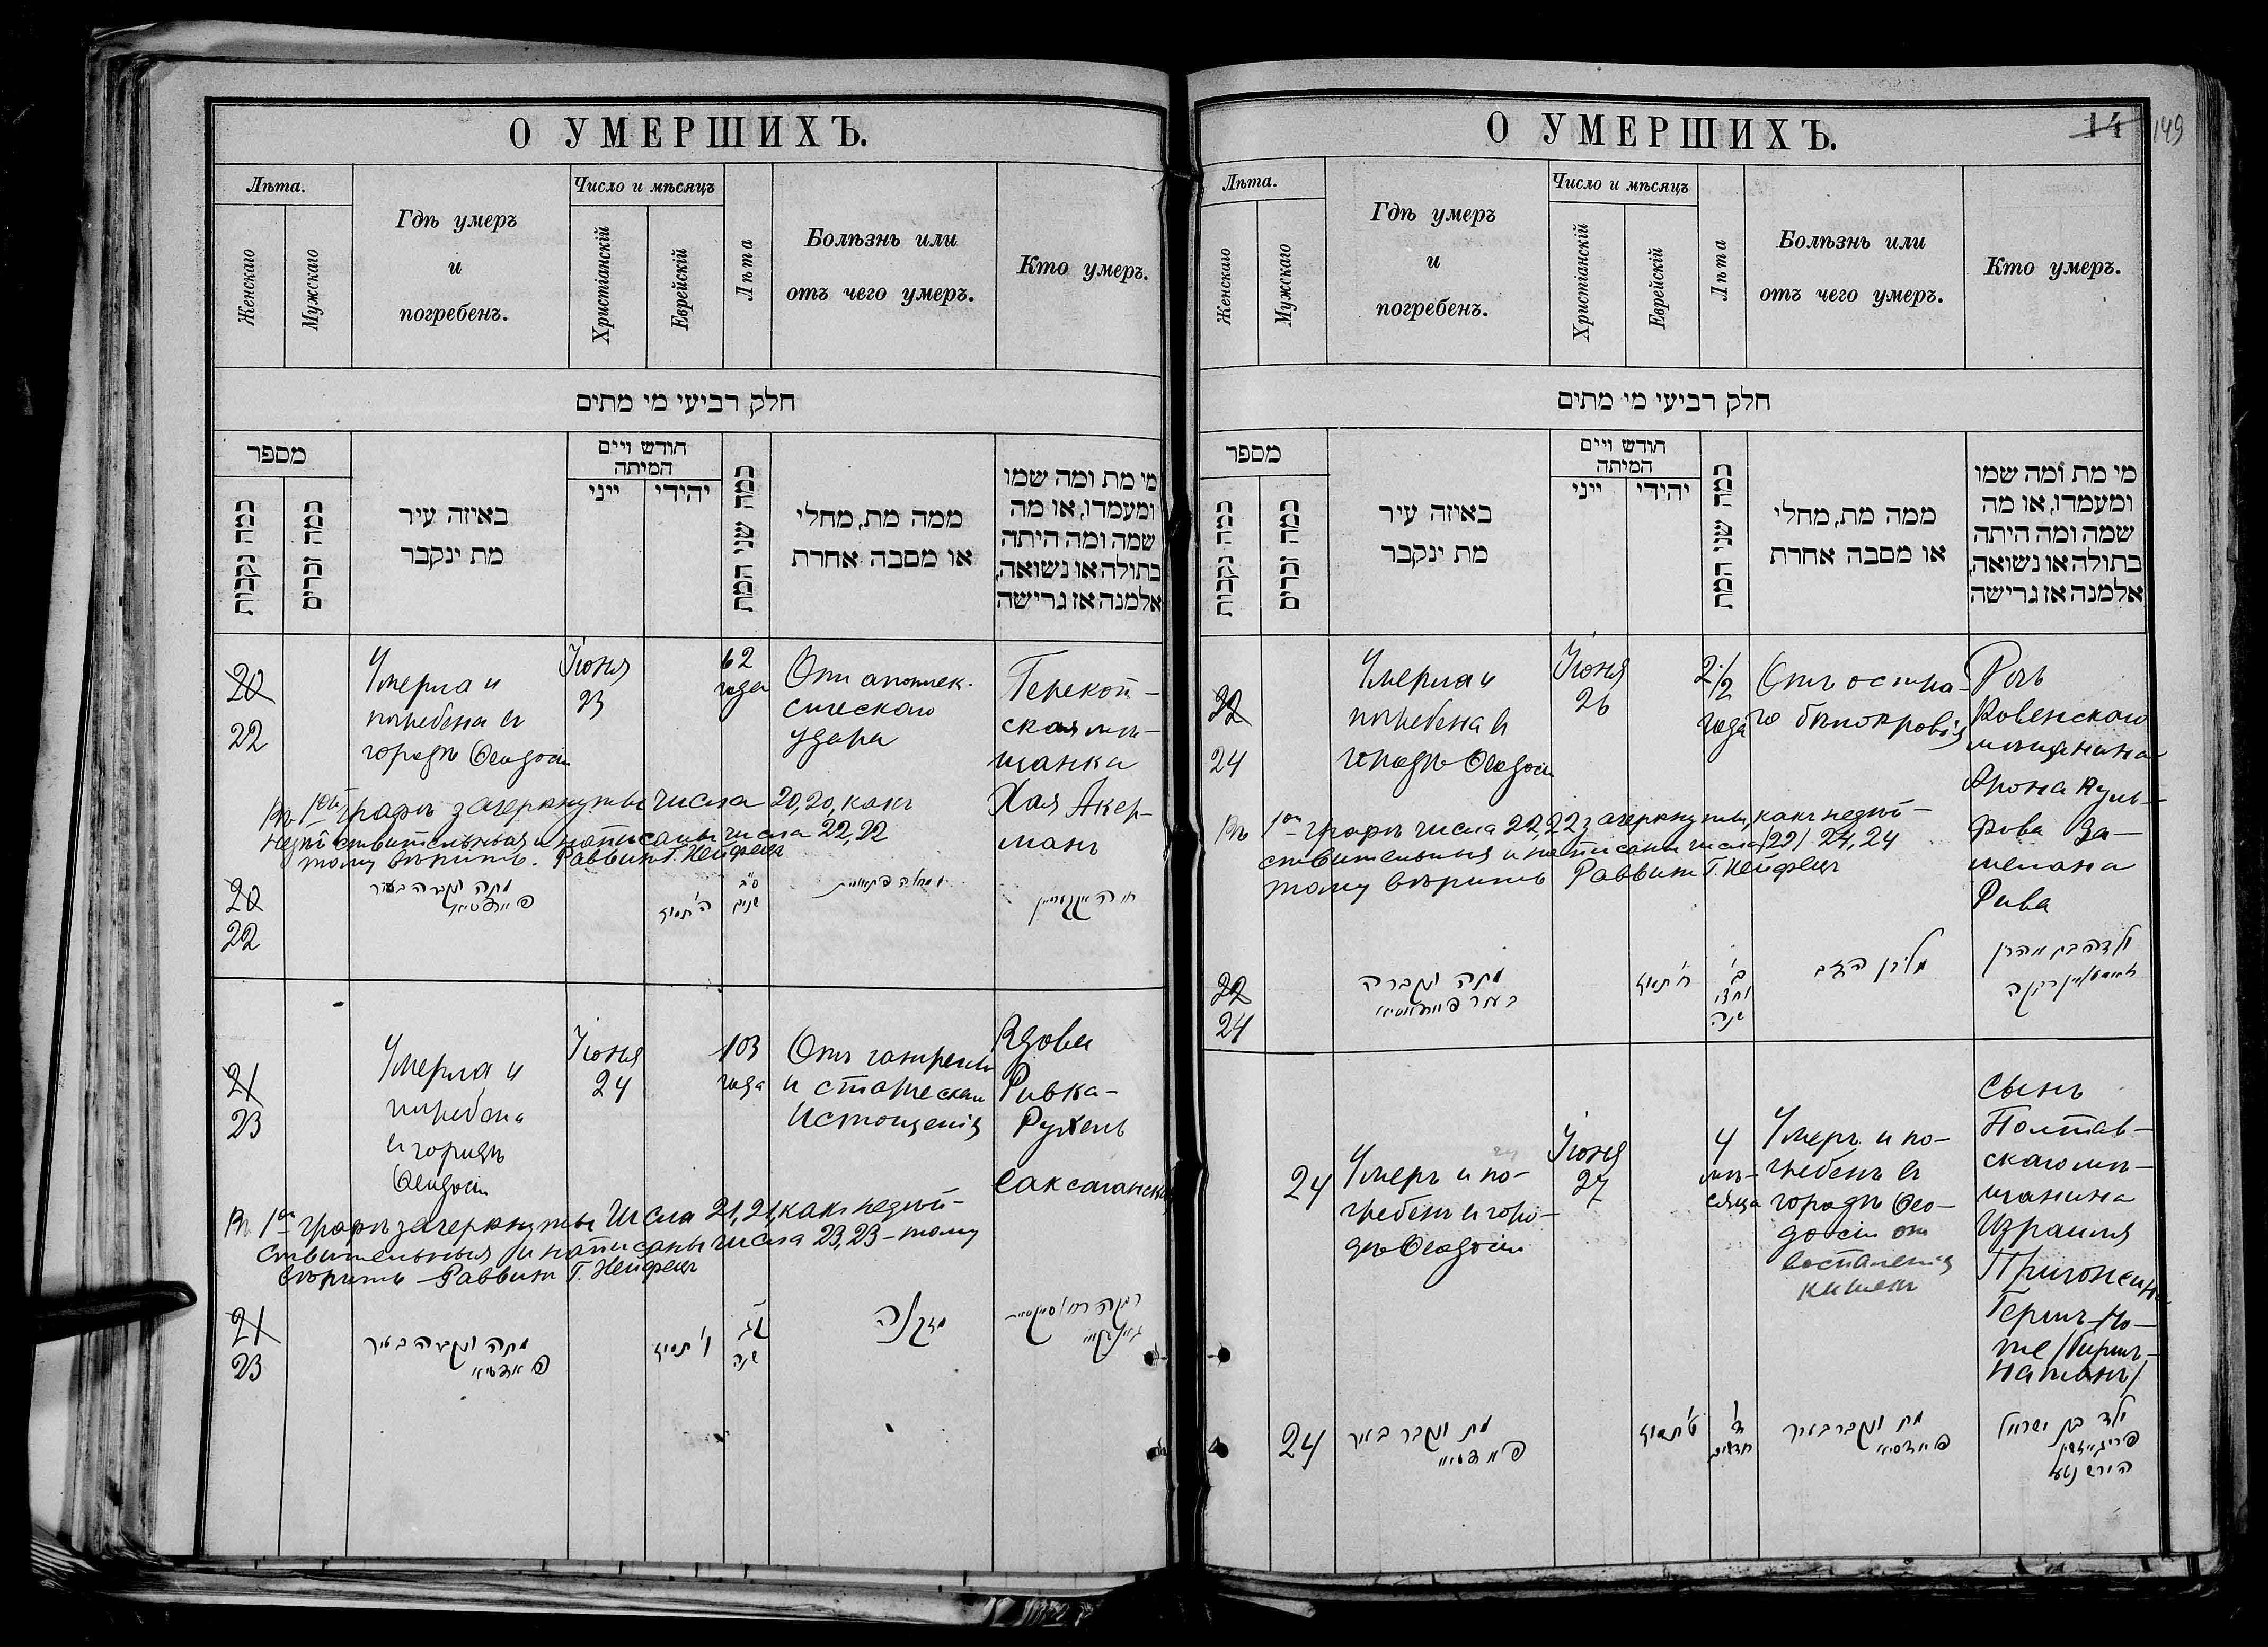 О УМЕРШИХЪ.
Лѣта.
Женскаго
Мужскаго
Гдѣ умеръ
и
погребенъ.
Число и мѣсяцъ
Христіанскій
Еврейскій
Лѣта
Болѣзнь или
отъ чего умеръ.
Кто умеръ.
חלק רביעי מי מתים
מספר
כמה נקבות
כמה זכרים
באיזה עיר
מת ינקבר
חודש ויים
המיתה
ייני
יהודי
כמה שני המת
ממה מת, מחלי
או מסבה אחרת
מי מת ומה שמו
ומעמדו, או מה
שמה ומה היתה
בתולה או נשואה,
אלמנה אז גרישה
20
22
Умерла и
погребена въ
городѣ Ѳеодосіи
Іюня
23
62
года
Отъ апоплек-
сическаго
удара
Перекоп-
ская мѣ-
щанка
Хая Акер-
манъ
Въ 1ой графѣ зачеркнуты числа 20, 20, какъ
недѣйствительныя и написаны числа 22, 22
тому вѣрить. Раввинъ Г. Нейфельд
20
22
מתה ונקברה בעיר
פיאדסיא
ה' תמוז
ס"ב
שנים
21
23
Умерла и
погребена
въ городѣ
Ѳеодосіи
Іюня
24
103
года
Отъ гангрены
и старческаго
истощенія
Вдова
Ривка-
Рухель
Саксаганска
Въ 1ой графѣ зачеркнуты числа 21, 21, какъ недѣй-
ствительныя и написаны числа 23, 23 - тому
вѣрить Раввинъ Г. Нейфельд
21
23
מתה ונקברה בעיר
פיאדסיא
ו' תמוז
קג
שנה
מזקנה
רבקה רחל
О УМЕРШИХЪ.
14
149
Лѣта.
Женскаго
Мужскаго
Гдѣ умеръ
и
погребенъ.
Число и мѣсяцъ
Христіанскій
Еврейскій
Лѣта
Болѣзнь или
отъ чего умеръ.
Кто умеръ.
חלק רביעי מי מתים
מספר
כמה נקבות
כמה זכרים
באיזה עיר
מת ינקבר
חודש ויים
המיתה
ייני
יהודי
כמה שני המת
ממה מת, מחלי
או מסבה אחרת
מי מת ומה שמו
ומעמדו, או מה
שמה ומה היתה
בתולה או נשואה,
אלמנה אז גרישה
22
24
Умерла и
погребена въ
городѣ Ѳеодосіи
Іюня
26
2 1/2
года
Отъ остра-
го бѣлокровія
Дочь
Ковенскаго
мѣщанина
Арона
Рива
Въ 1ой графѣ числа 22, 22 зачеркнуты, какъ недѣй-
ствительныя и написаны числа /22/ 24, 24
тому вѣрить Раввинъ Г. Нейфельд
22
24
מתה ונקברה
בעיר פיאדאסיא
ח' תמוז
ב'
וחצי
שנה
ילדה בת אהרן
24
Умеръ и по-
гребенъ въ горо-
дѣ Ѳеодосіи
Іюня
27
4
мѣ-
сяца
Умеръ и по-
гребенъ въ
городѣ Ѳео-
досіи отъ
воспаленія
кишекъ
Сынъ
Полтав-
скаго мѣ-
щанина
Израиля
Пригожина
Гершъ-Но-
те /Гиршъ-
Натанъ/
24
מת ונקבר בעיר
פיאדסיא
ט' תמוז
ד'
חדשים
מת ונקבר בעיר
פיאדסיא
ילד בן ישראל
פריגאזשין
הירש נטע